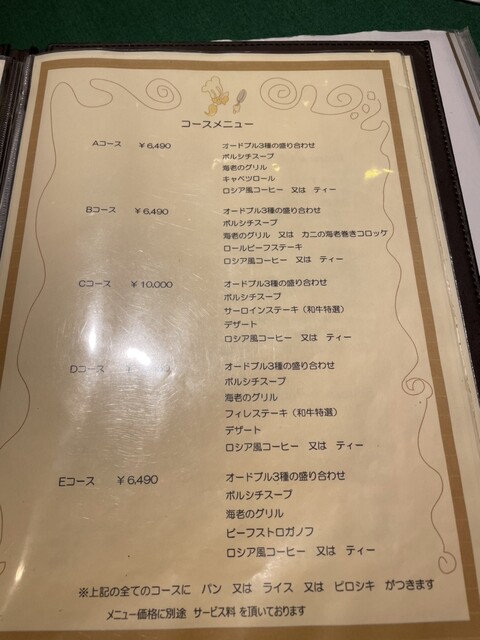 コースメニュー
Aコース ¥6,490 オードブル3種の盛り合わせ
ボルシチスープ
海老のグリル
キャベツロール
ロシア風コーヒー 又は ティー
Bコース ¥6,490 オードブル3種の盛り合わせ
ボルシチスープ
海老のグリル 又は カニの海老巻きコロッケ
ロールビーフステーキ
ロシア風コーヒー 又は ティー
Cコース ¥10,000 オードブル3種の盛り合わせ
ボルシチスープ
サーロインステーキ(和牛特選)
デザート
ロシア風コーヒー 又は ティー
Dコース オードブル3種の盛り合わせ
ボルシチスープ
海老のグリル
フィレステーキ(和牛特選)
デザート
ロシア風コーヒー 又は ティー
Eコース ¥6,490 オードブル3種の盛り合わせ
ボルシチスープ
海老のグリル
ビーフストロガノフ
ロシア風コーヒー 又は ティー
※上記の全てのコースに パン 又は ライス 又は ピロシキ がつきます
メニュー価格に別途 サービス料 を頂いております